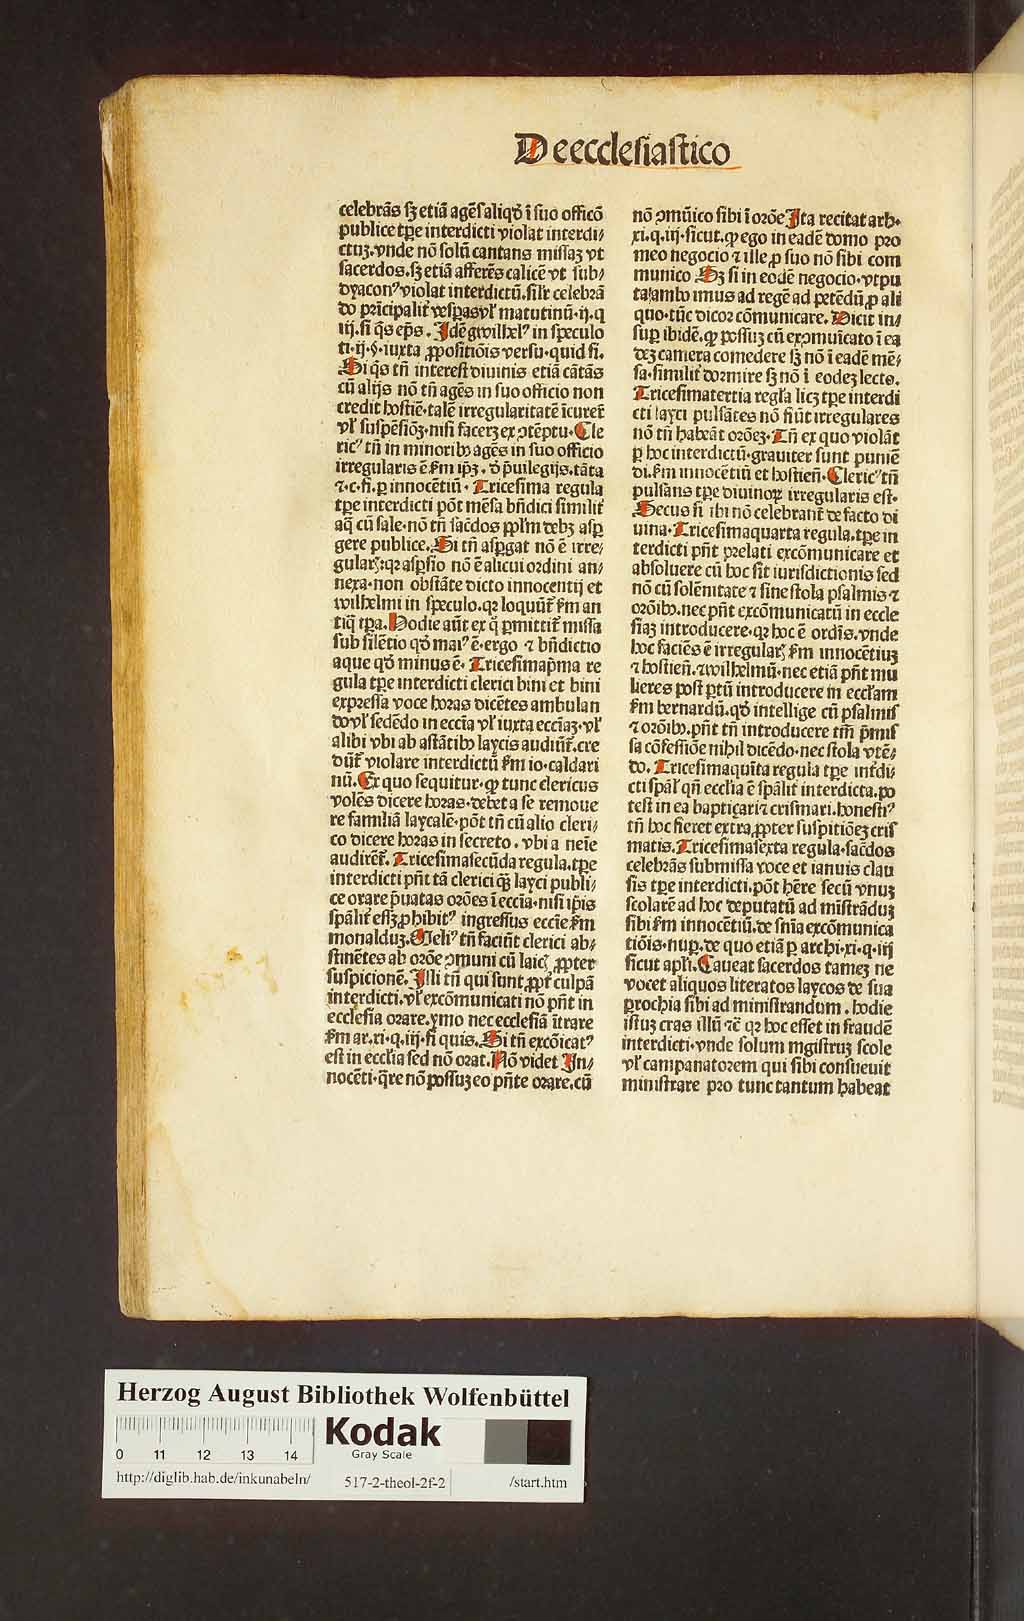 De ecclesiastico
celebrās sꝫ etiā agēs aliqd̄ ī suo officō
publice tp̄e interdicti violat interdi⸗
ctuꝫ. vnde nō solū cantans missaꝫ vt
sacerdos. sꝫ etiā afferēs calicē vt sub⸗
dyaconꝰ violat interdictū. silr̄ celebrā
do p̄ncipalit̄ vesp̄as vl̓ matutinū. ij. q
iij. si q̄s ep̄s. Idē gwilhelꝰ in speculo
ti. ij. §. iuxta ꝓpositiōis versu. quid si.
Si q̄s tn̄ interest diuinis etiā cātās
cū alijs nō tn̄ agēs in suo officio non
credit hostiē. talē irregularitatē īcurrē
vl̓ suspēsiōꝫ. nisi facerꝫ ex ꝯtēptu. Cle
ricꝰ tn̄ in minoribꝫ agēs in suo officio
irregularis ē ẜm ip̄ꝫ. d̓ p̓uilegijs. tāta
⁊. c. fi. ꝑ innocētiū. Tricesima regula
tp̄e interdicti pōt mēsa bn̄dici similit̄
aq̄ cū sale. nō tn̄ sac̄dos pp̄lm debꝫ asꝑ
gere publice. Si tn̄ asꝑgat nō ē irre⸗
gularꝭ. qꝛ asꝑsio nō ē alicui ordini an⸗
nexa. non obstāte dicto innocentij et
wilhelmi in speculo. qꝛ loquūt̄ ẜm an
tiq̄ tp̄a. Hodie aūt ex q̄ ꝑmittit̄ missa
sub silētio qd̓ maiꝰ ē. ergo ⁊ bn̄dictio
aque qd̓ minus ē. Tricesimap̓ma re
gula tp̄e interdicti clerici bini et bini
expressa voce horas dicētes ambulan
do vl̓ sedēdo in eccīa vl̓ iuxta eccīaꝫ. vl̓
alibi vbi ab astātibꝫ laycis audiūt̄. cre
dūt̄ violare interdictū ẜm io. caldari
nū. Ex quo sequitur. ꝙ tunc clericus
volēs dicere horas. debet a se remoue
re familiā laycalē. pōt tn̄ cū alio cleri⸗
co dicere horas in secreto. vbi a neīe
audiret̄. Tricesimasecūda regula. tp̄e
interdicti pn̄t tā clerici qꝫ̄ layci publi⸗
ce orare p̓uatas orōes ī eccīa. nisi ip̄is
sp̄alit̄ eſꝫ ꝓhibitꝰ ingressus eccīe ẜm
monalduꝫ. Meliꝰ tn̄ faciūt clerici ab⸗
stinētes ab orōe ꝯmuni cū laicꝭ ꝓpter
suspicionē. Illi tn̄ qui sunt ꝓpt̓ culpā
interdicti. vl̓ excōmunicati nō pn̄t in
ecclesia orare. ymo nec ecclesiā ītrare
ẜm ar. xi. q. iij. si quis. Si tn̄ excōicatꝰ
est in ecclīa sed nō orat. Nō videt In⸗
nocēti. q̄re nō possuꝫ eo pn̄te orare. cū
nō ꝯmūico sibi ī orōe Ita recitat arh.
xi. q. iij. sicut. ꝙ ego in eadē domo pro
meo negocio ⁊ ille ꝓ suo nō sibi com
munico Sꝫ si in eodē negocio. vtpu
ta ambo imus ad regē ad petēdū ꝓ ali
quo. tūc dicor cōmunicare. Dicit in⸗
suꝑ ibidē. ꝙ possuꝫ cū exꝯmuīcato ī ea
deꝫ camera comedere sꝫ nō ī eadē mē⸗
sa. similit̄ dormire sꝫ nō ī eodeꝫ lecto.
Tricesimatertia regl̓a licꝫ tp̄e interdi
cti layci pulsātes nō fiūt irregulares
nō tn̄ habeāt orōeꝫ. Tn̄ ex quo violāt
ꝑ hoc interdictū. grauiter sunt puniē
di. ẜm innocētiū et hostien̄. Clericꝰ tn̄
pulsans tp̄e diuinoꝝ irregularis est.
Secus si ibi nō celebrant̄ de facto di
uina. Tricesimaquarta regula. tp̄e in
terdicti pn̄t prelati excōmunicare et
absoluere cū hoc sit iurisdictionis sed
nō cū solēnitate ⁊ sine stola psalmis ⁊
orōibꝫ. nec pn̄t excōmunicatū in eccle
siaꝫ introducere. qꝛ hoc ē ordīs. vnde
hoc faciēs ē irregularꝭ ẜm innocētiuꝫ
⁊ hostien̄. ⁊ wilhelmū. nec etiā pn̄t mu
lieres post ꝑtū introducere in eccl̓am
ẜm bernardū. qd̓ intellige cū psalmis
⁊ orōibꝫ. pn̄t tn̄ introducere tm̄ p̓mis
sa cōfessiōe nihil dicēdo. nec stola vtē⸗
do. Tricesimaquīta regula tp̄e int̓di⸗
cti sp̄al̓ qn̄ ecclīa ē sp̄alit̄ interdicta. po
test in ea baptiçari ⁊ crismari. honestiꝰ
tn̄ hoc fieret extra, ꝓpter suspitiōeꝫ cris
matis. Tricesimasexta regula. sac̄dos
celebrās submissa voce et ianuis clau
sis tp̄e interdicti. pōt hēre secū vnuꝫ
scolarē ad hoc deputatū ad mīstrāduꝫ
sibi ẜm innocētiū. de sn̄ia excōmunica
tiōis. nuꝑ. de quo etiā ꝑ archi. xi. q. iij
sicut apl̓i. Caueat sacerdos tameꝫ ne
vocet aliquos literatos laycos de sua
ꝑrochia sibi ad ministrandum. hodie
istuꝫ cras illū ⁊c̄ qꝛ hoc esset in fraudē
interdicti. vnde solum mgīstruꝫ scole
vl̓ campanatorem qui sibi consueuit
ministrare pro tunc tantum habeat
Herzog August Bibliothek Wolfenbüttel
0 11 12 13 14
Kodak
Gray Scale
http://diglib.hab.de/inkunabeln/ 517-2-theol-2f-2 /start.htm